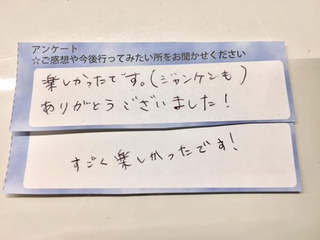 アンケート
☆ご感想や今後行ってみたい所をお聞かせください
楽しかったです。(ジャンケンも)
ありがとうございました!
すごく楽しかったです!